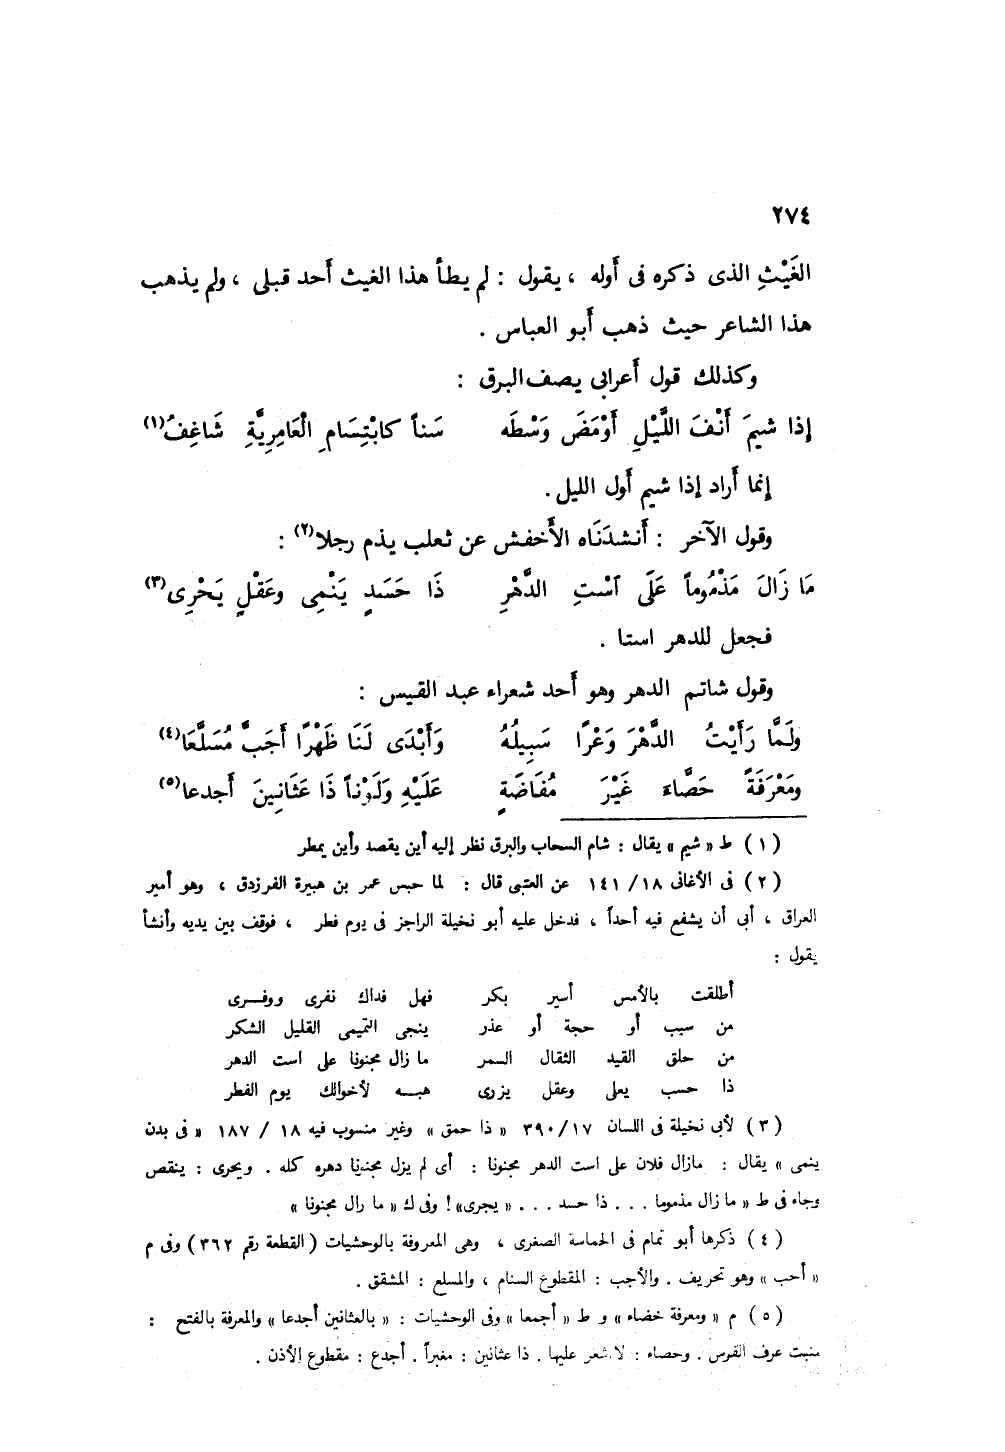 ٢٧٤
الغَيْثِ الذى ذكره فى أَوله ، يقول : لم يطأ هذا الغيث أَحد قبلى ، ولم يذهب
هذا الشاعر حيث ذهب أَبو العباس .
وكذلك قول أَعرابى يصف البرق :
إذا شيمَ أَنْفَ اللَّيْلِ أَوْمَضَ وَسْطَه سَناً كابْتِسَامِ الْعَامِرِيَّةِ شَاغِفُ(١)
إنما أَراد إذا شيم أَول الليل .
وقول الآخر : أَنشدَنَاه الأَخفش عن ثعلب يذم رجلا(٢) :
مَا زَالَ مَذْمُوماً عَلَى آسْتِ الدَّهْرِ ذَا حَسَدٍ يَنْمِى وعَقْلٍ يَحْرِى(٣)
فجعل للدهر استا .
وقول شاتم الدهر وهو أَحد شعراء عبد القيس :
ولَمَّا رَأَيْتُ الدَّهْرَ وَعْرًا سَبِيلُهُ وَأَبْدَى لَنَا ظَهْرًا أَجَبَّ مُسَلَّعَا(٤)
ومَعْرَفَةً حَصَّاءَ غَيْرَ مُفَاضَةٍ عَلَيْهِ وَلَوْناً ذَا عَثَانِينَ أَجدعا(٥)
(١) ط « شيم » يقال : شام السحاب والبرق نظر إليه أين يقصد وأين يمطر
(٢) فى الأغانى ١٨/ ١٤١ عن العتبى قال : لما حبس عمر بن هبيرة الفرزدق ، وهو أمير
العراق ، أبى أن يشفع فيه أحداً ، فدخل عليه أبو نخيلة الراجز فى يوم فطر ، فوقف بين يديه وأنشأ
يقول :
أطلقت بالأمس أسير بكر فهل فداك نفرى ووفــرى
من سبب أو حجة أو عذر ينجى التميمى القليل الشكر
من حلق القيد الثقال السمر ما زال مجنونا على است الدهر
ذا حسب يعلى وعقل يزرى هبــه لأخوالك يوم الفطر
(٣) لأبى نخيلة فى اللسان ١٧/ ٣٩٠ « ذا حمق » وغير منسوب فيه ١٨ / ١٨٧ « فى بدن
ينمى » يقال : مازال فلان على است الدهر مجنونا : أى لم يزل مجنونا دهره كله . ويحرى : ينقص
وجاء فى ط « ما زال مذموما . . . ذا حسد . . . « يجرى» ! وفى ك « ما رال مجنونا »
(٤) ذكرها أبو تمام فى الحماسة الصغرى ، وهى المعروفة بالوحشيات ( القطعة رقم ٣٦٢ ) وفى م
« أحب » وهو تحريف . والأجب : المقطوع السنام ، والمسلع : المشقق .
(٥) م « ومعرفة خضاء » و ط « أجمعا » وفى الوحشيات : « بالعثانين أجدعا » والمعرفة بالفتح :
منبت عرف الفرس . وحصاء : لا شعر عليها . ذا عثانين : مغبراً . أجدع : مقطوع الأذن .